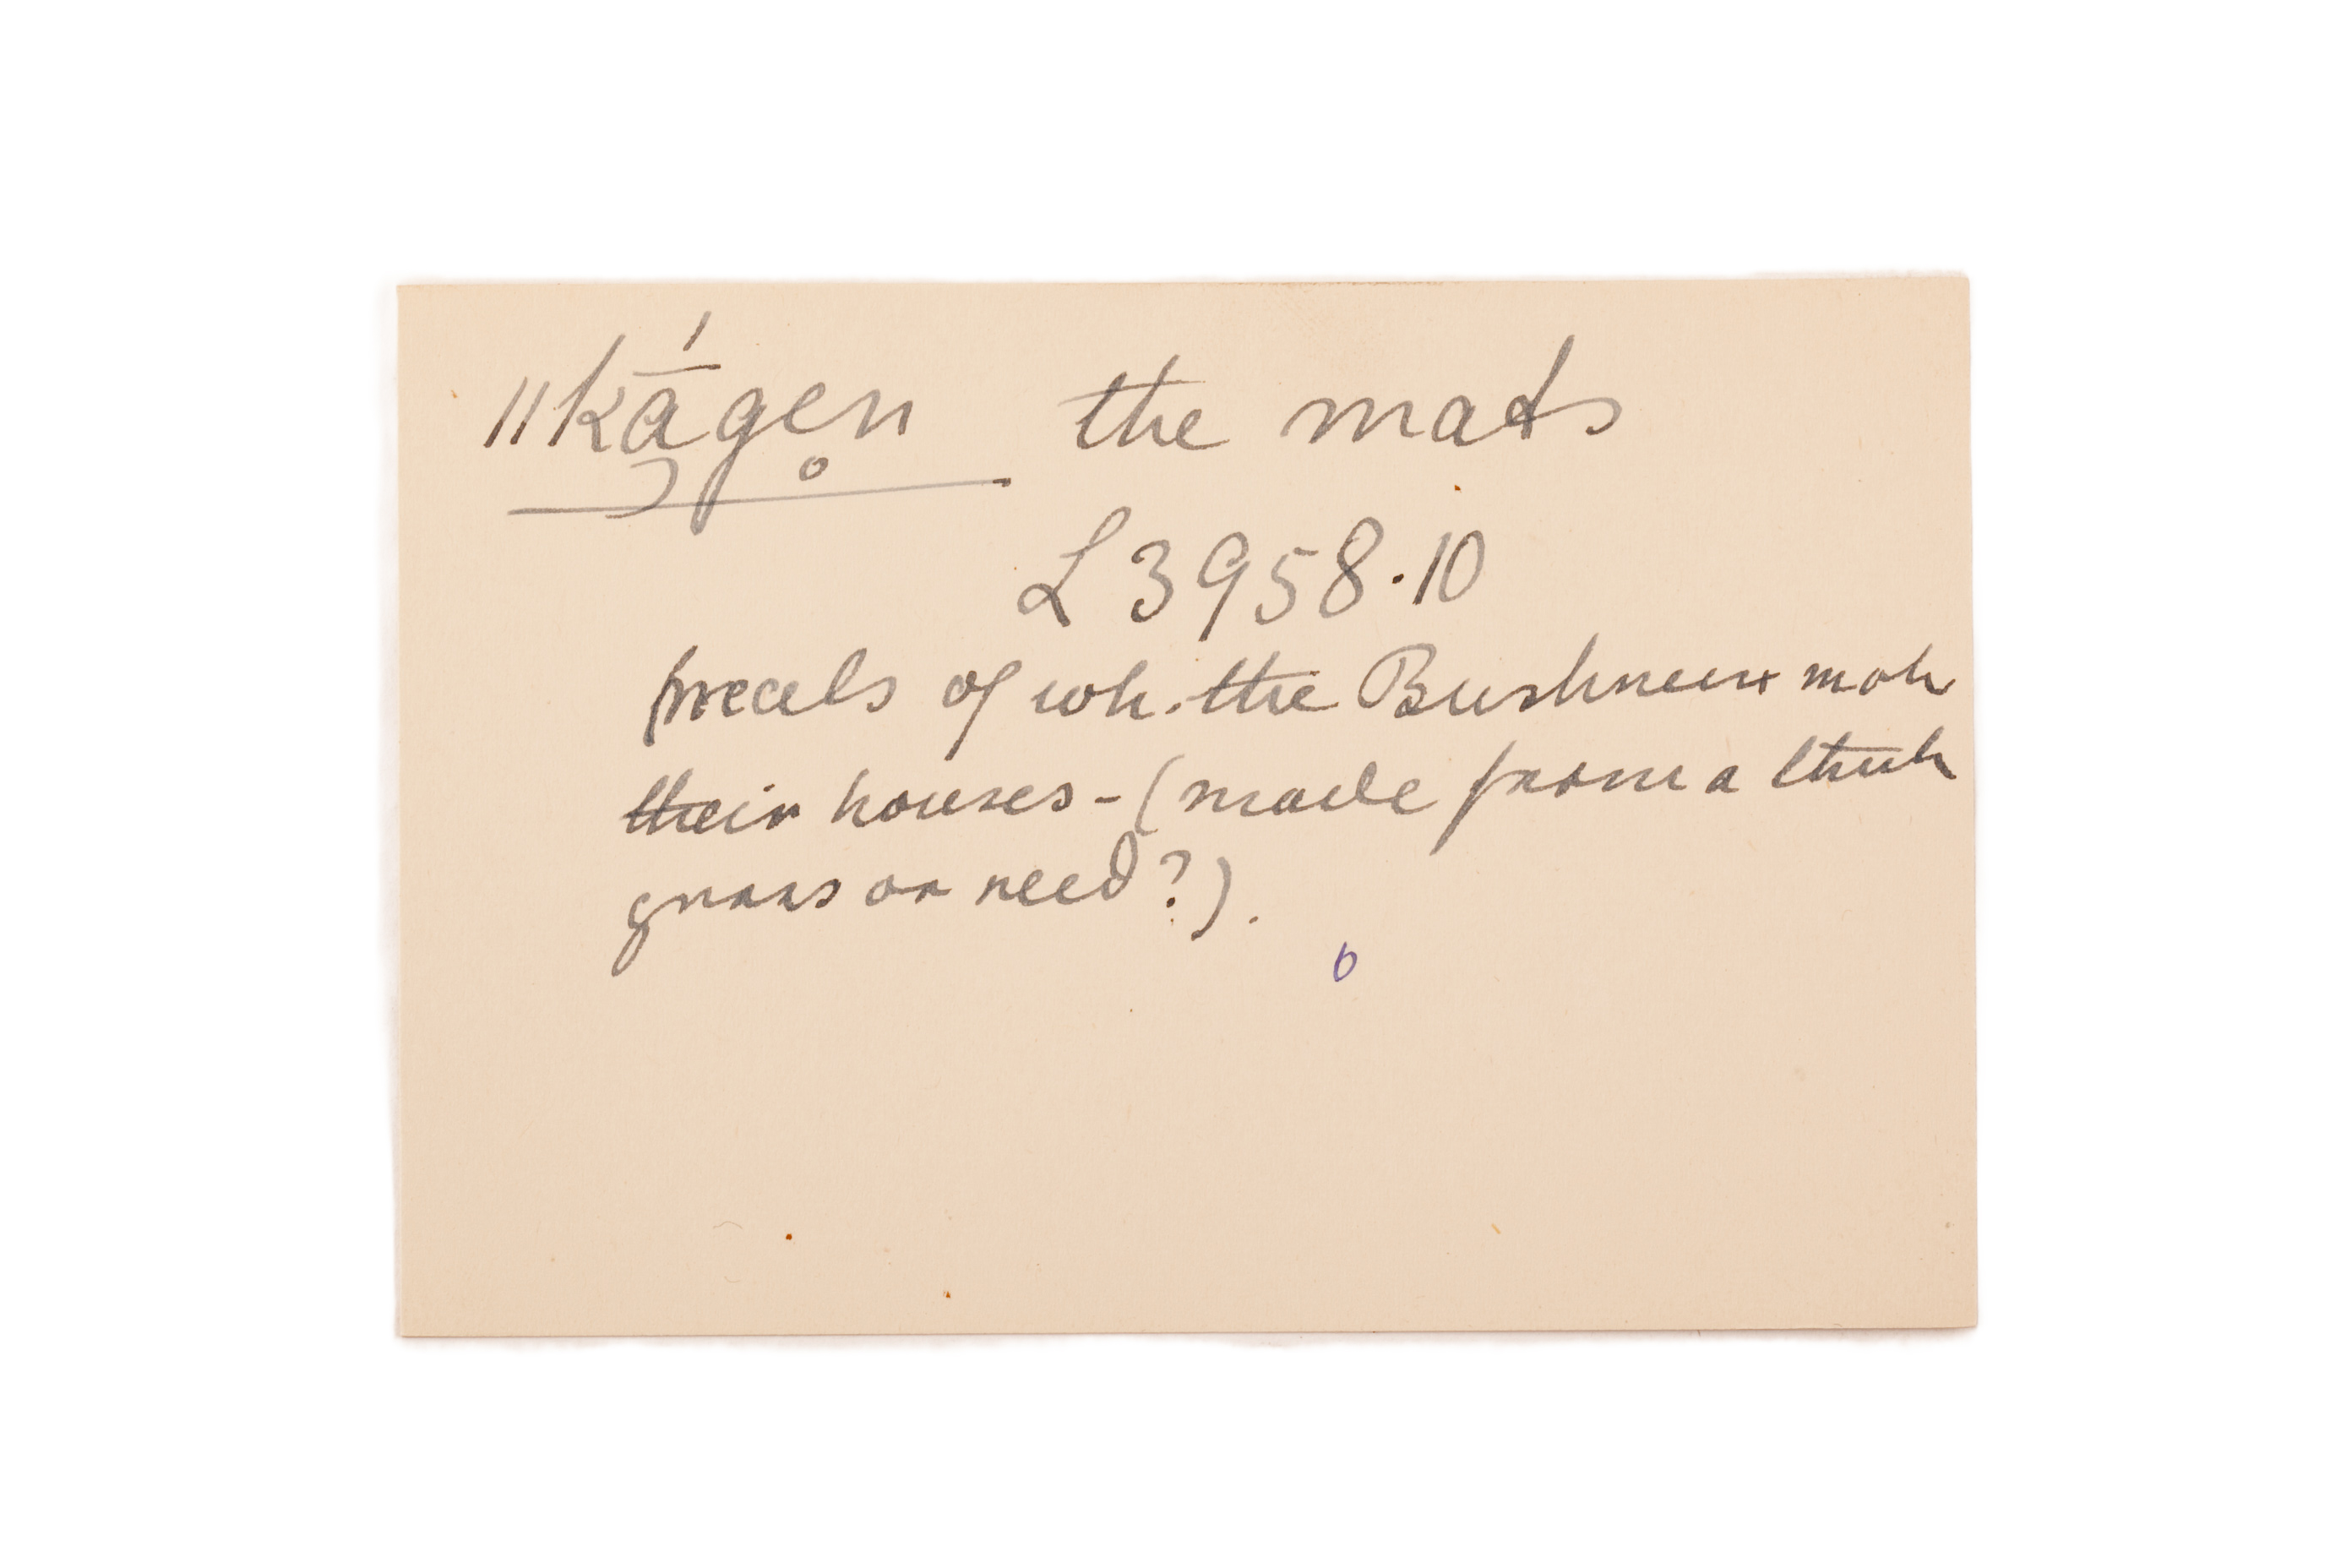 ǁkā́gen the mats
L 3958·10
of wh. the Bushmen make
their houses - (made from a thick
grass or reed?).
6